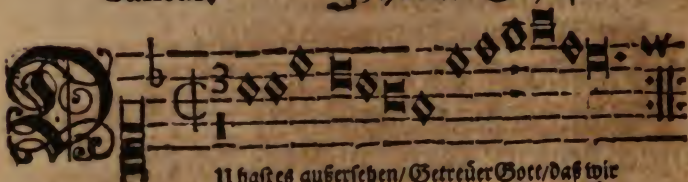 DU hast es außersehen/ Getreüer Gott/ daß wir